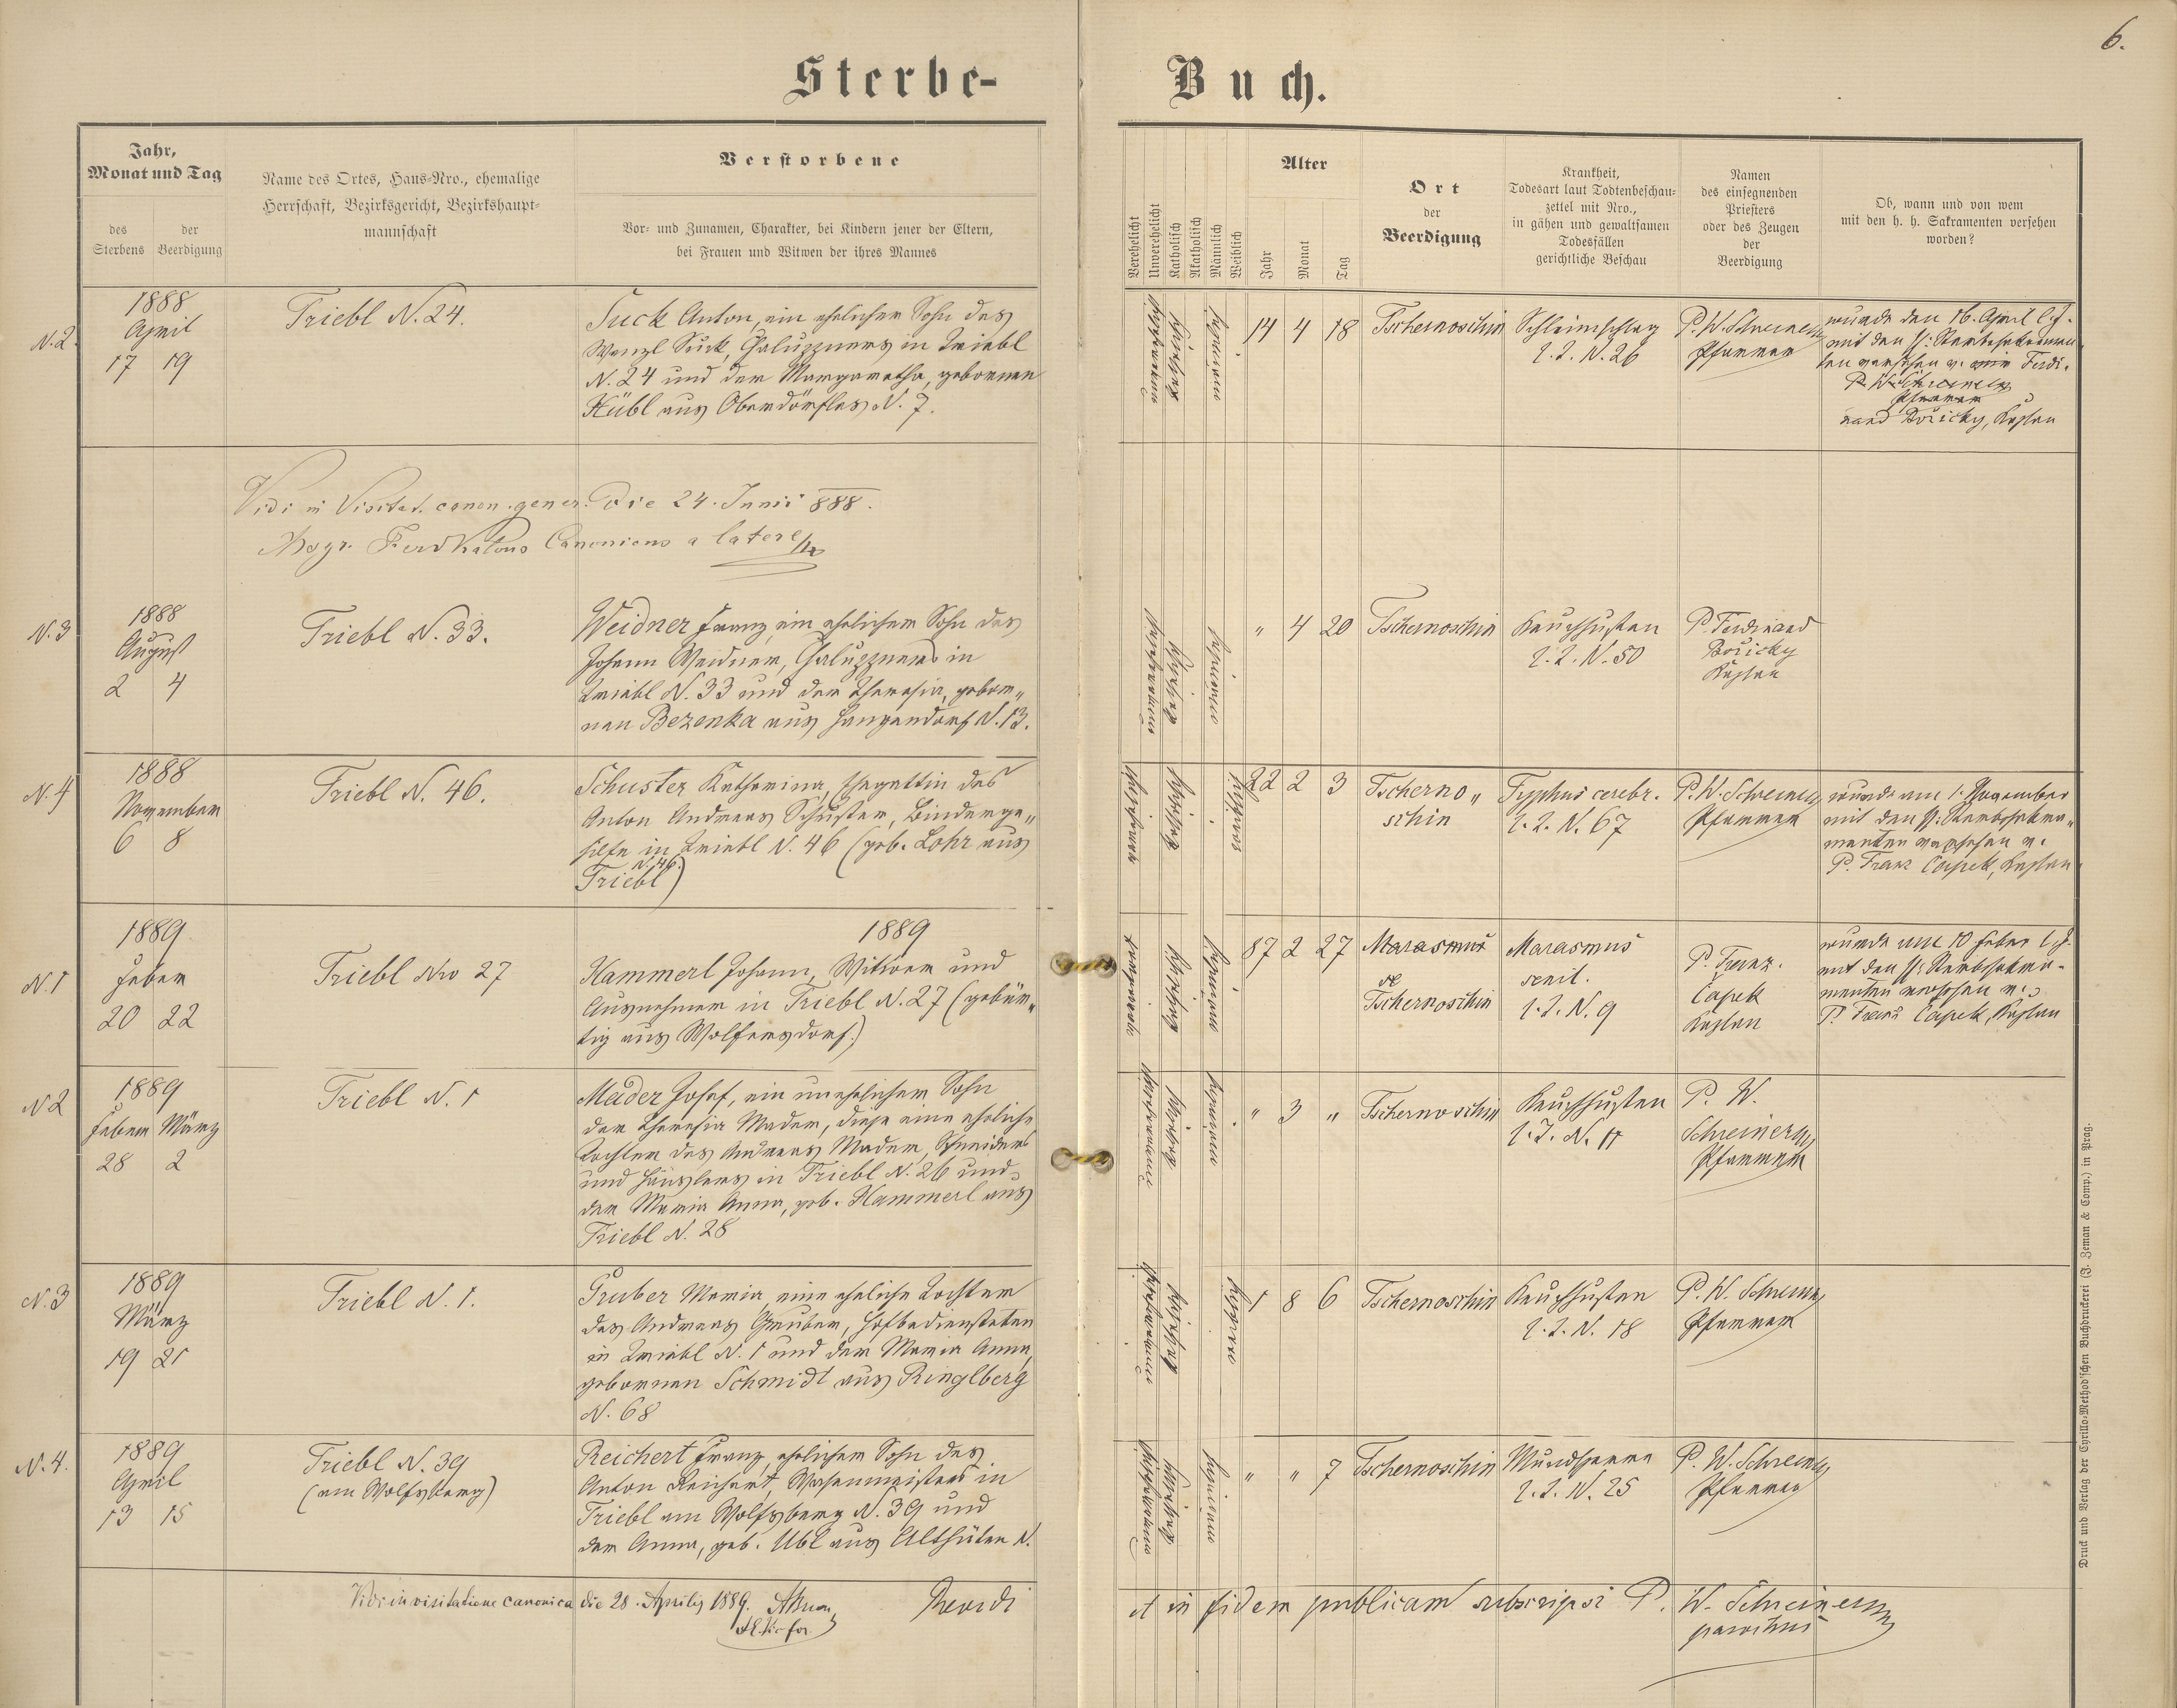 6.
Sterbe-Buch.
Jahr,
Monat und Tag
des
Sterbens
der
Beerdigung
Name des Ortes, Haus-Nro., ehemalige
Herrschaft, Bezirksgericht, Bezirkshaupt-
mannschaft
Verstorbene
Vor- und Zunamen, Charakter, bei Kindern jener der Eltern,
bei Frauen und Witwen der ihres Mannes
Verehelicht
Unverehelicht
Katholisch
Akatholisch
Männlich
Weiblich
Alter
Jahr
Monat
Tag
Ort
der
Beerdigung
Krankheit,
Todesart laut Todtenbeschau-
zettel mit Nro.,
in gähen und gewaltsamen
Todesfällen
gerichtliche Beschau
Namen
des einsegnenden
Priesters
oder des Zeugen
der
Beerdigung
Ob, wann und von wem
mit den h. h. Sakramenten versehen
worden?
N. 2.
1888
April
17 19
Triebl N. 24.
Suck Anton, ein ehelicher Sohn des
Wenzl Suck, Chaluppners in Triebl
N. 24 und der Margaretha, gebornen
Hübl aus Oberdörfles N. 7.
14 4 18
Tschernoschin
Schleimschlag
N. 26
P. W. Schreiner
Pfarrer
wurde den 16. April l. J.
mit den hl: Sterbsakramen
ten versehen v. mir Ferdi-
P. W. Schreiner
Pfarrer
nand Bořicky, Kaplan
Vidi in Visitat. canon. gener. die 24. Junii 888.
Canonicus a latere
N. 3
1888
August
2 4
Triebl N. 33.
Weidner Franz, ein ehelicher Sohn des
Johann Weidner, Chaluppners in
Triebl N. 33 und der Theresia, gebor„
nen Bezenka aus Hangendorf N. 13.
„ 4 20
Tschernoschin
Keuchhusten
N. 50
P. Ferdinand
Bořicky
Kaplan
N. 4
1888
November
6 8
Triebl N. 46.
Schuster Katharina, Ehegattin des
Anton Andreas Schuster, Binderge„
hilfe in Triebl N. 46 (geb. Lohr aus
Triebl N. 46.)
22 2 3
Tscherno„
schin
Typhus cerebr.
N. 67
P. W. Schreiner
Pfarrer
wurde am 1. November
mit den hl: Sterbsakra„
menten versehen v.
P. Franz Čapek, Kaplan
1889
N. 1
1889
Feber
20 22
Triebl Nro 27
Hammerl Johann, Witwer und
Ausnehmer in Triebl N. 27 (gebür„
tig aus Wolfersdorf.)
87 2 27
Marasmus
se
Tschernoschin
Marasmus
senil.
N. 9
P. Franz
Čapek
Kaplan
wurde am 10 Feber l. J.
mit den hl: Sterbsakra-
menten versehen v.
P. Franz Čapek, Kaplan
N 2
1889
Feber März
28 2
Triebl N. 1
Mader Josef, ein unehelicher Sohn
der Theresia Mader, diese eine eheliche
Tochter des Andreas Mader, Schneiders
und Häuslers in Triebl N. 26 und
der Maria Anna, geb. Hammerl aus
Triebl N. 28
„ 3 „
Tschernoschin
Keuchhusten
N. 11
P. W.
Schreiner
Pfarrer
N. 3
1889
März
19 21
Triebl N. 1.
Gruber Maria, eine eheliche Tochter
des Andreas Gruber, Hofbediensteten
in Triebl N. 1 und der Maria Anna,
gebornen Schmidt aus Ringlberg
N. 68
1 8 6
Tschernoschin
Keuchhusten
N. 18
P. W. Schreiner
Pfarrer
N. 4.
1889
April
13 15
Triebl N. 39
(am Wolfsberg)
Reichert Franz, ehelicher Sohn des
Anton Reichert, Wasenmeisters in
Triebl am Wolfsberg N. 39 und
der Anna, geb. Ubl aus Althütten N.
„ „ 7
Tschernoschin
Mundsperre
N. 25
P. W. Schreiner
Pfarrer
Vidi in visitatione canonica die 28. Aprilis 1889.
et in fidem publicam subscripsi P. W. Schreiner
parochus
Druck und Verlag der Cyrillo-Method'schen Buchdruckerei (J. Zeman & Comp.) in Prag.